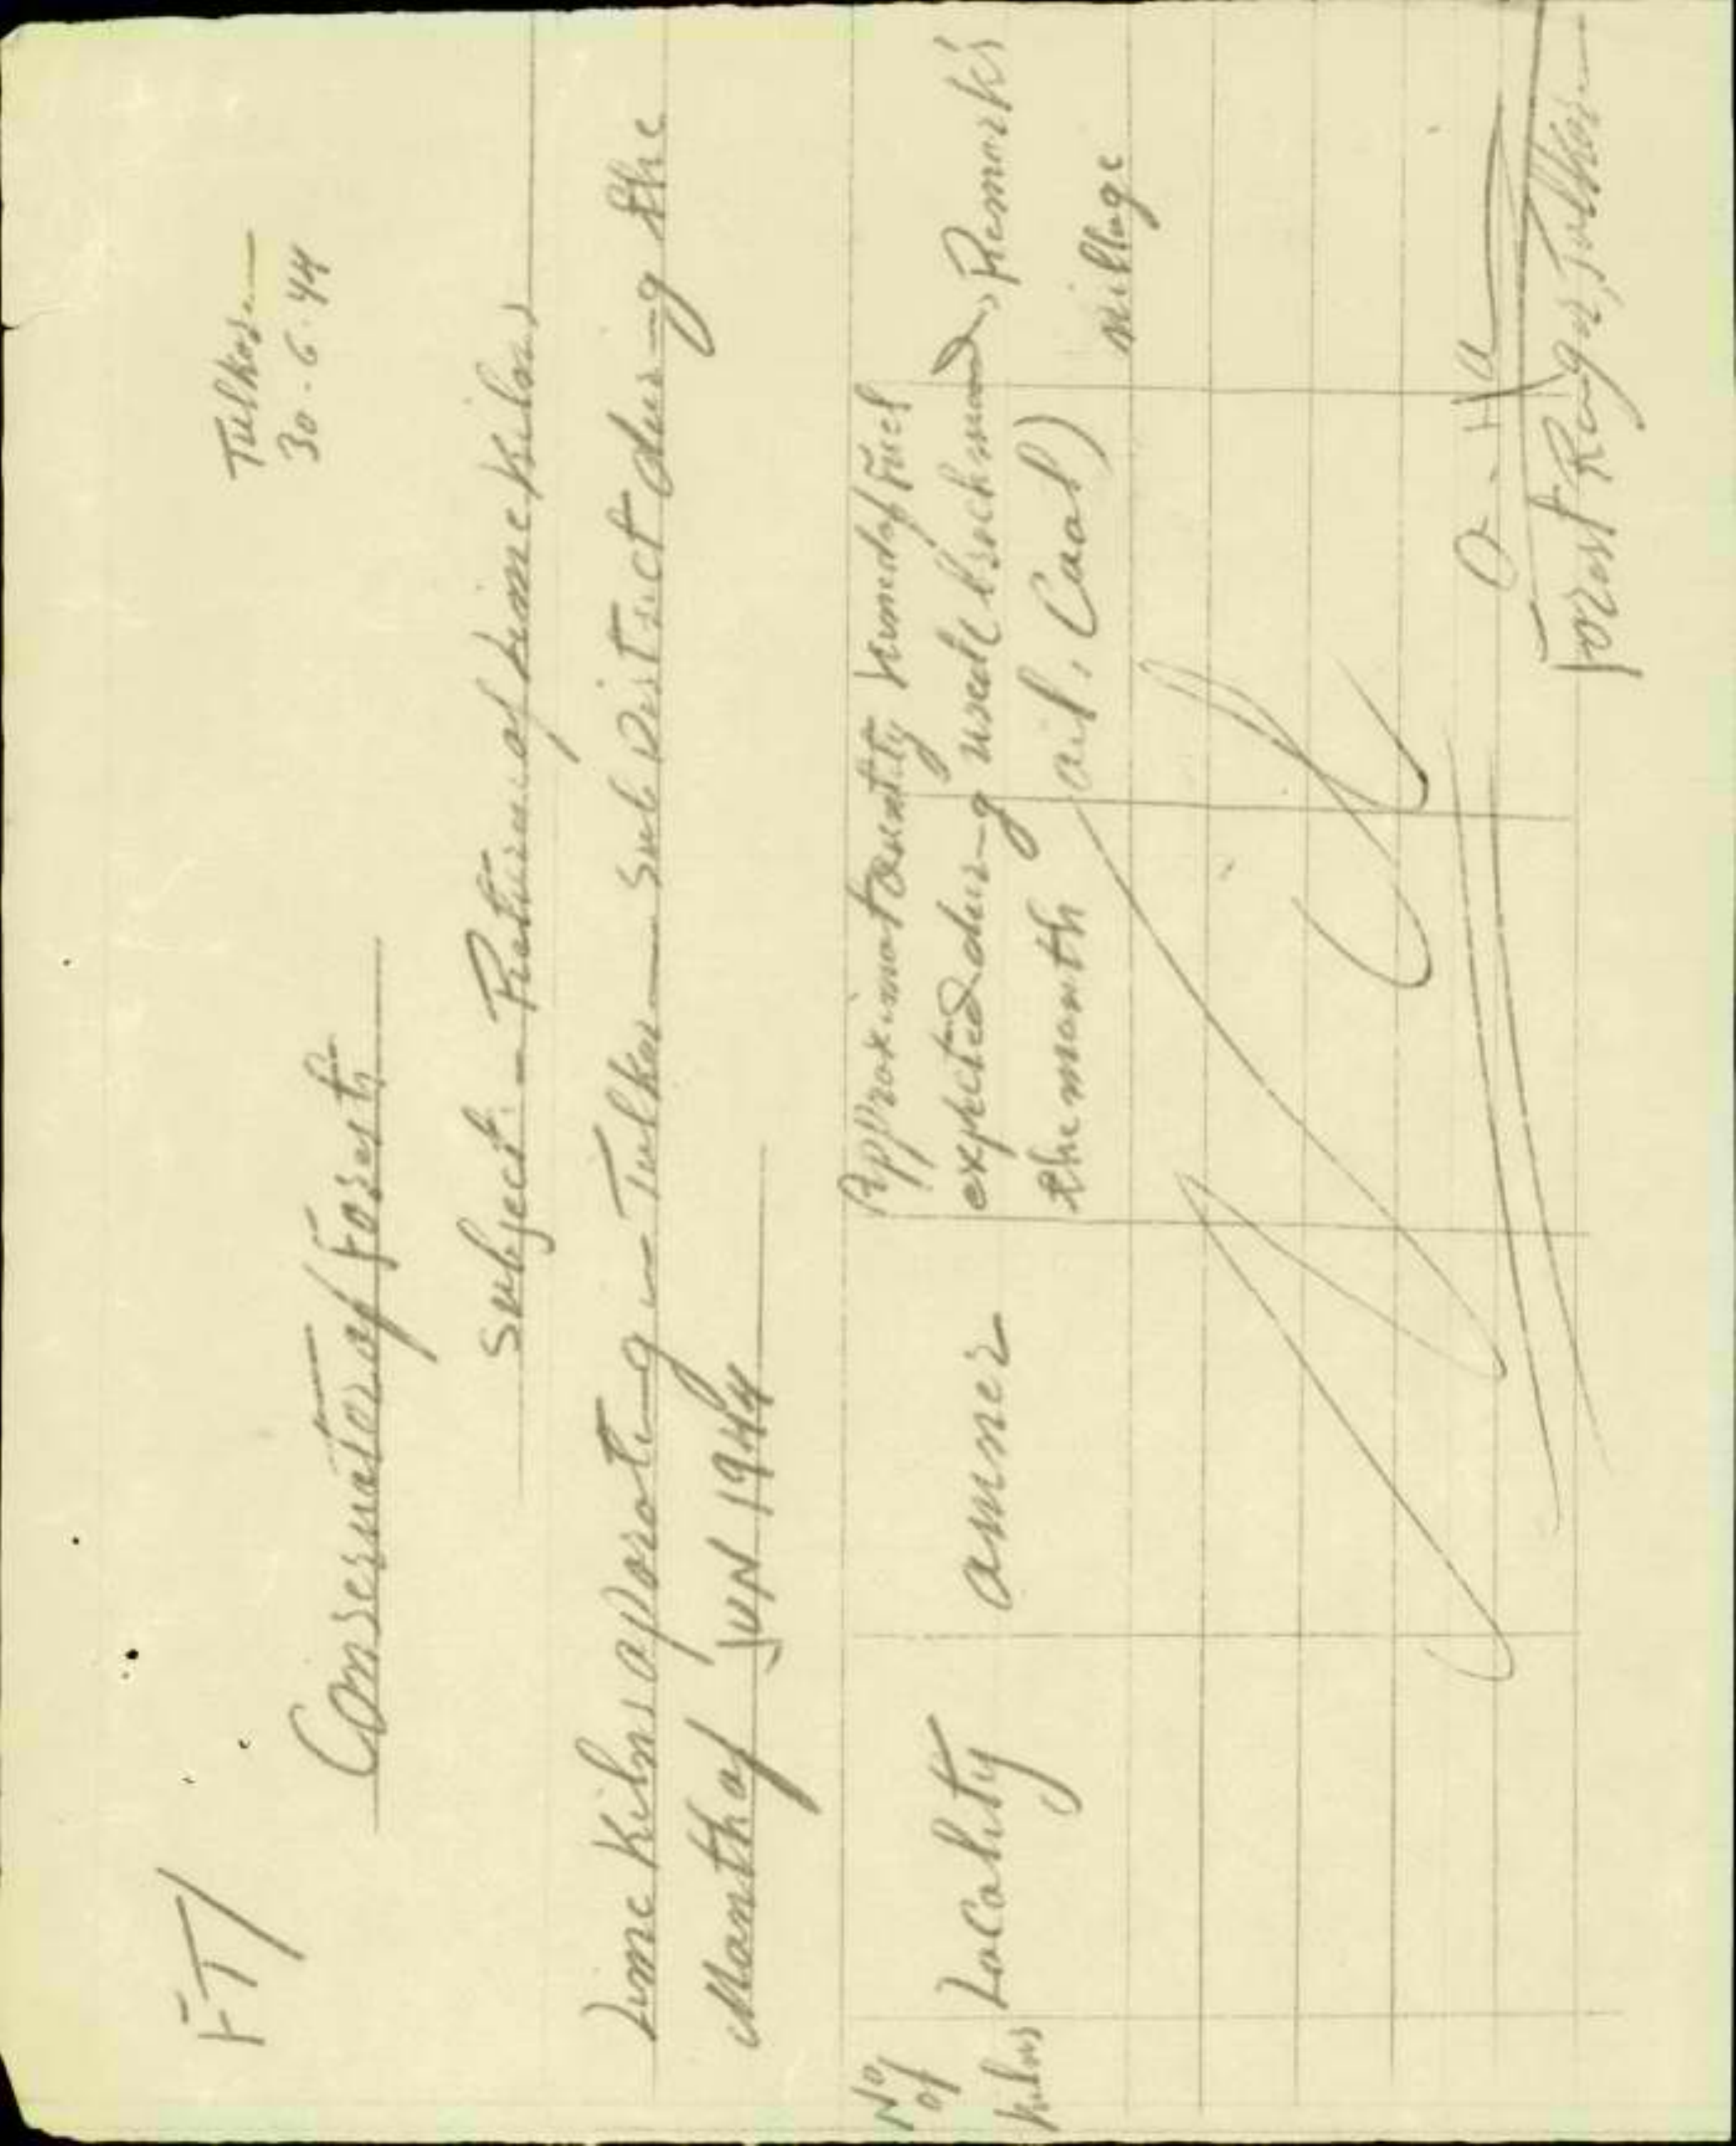 FT/
Tulkarm
30-6-44
Conservator of Forest
Subject:- Return of Lime Kilns
Lime Kilns aporoting in Tulkarm Sub District during the
Month of JUN 1944
No of kilns
Locality
awner
Approximat qauntity expected during the month
kined of Fuel used (brochmond, ail, Caol)
Remark's
village
Forest Ranger, Tulkarm